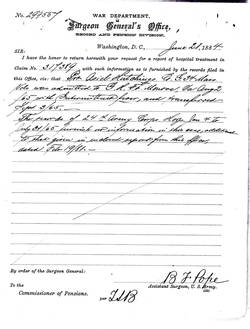 WAR DEPARTMENT,
Surgeon General's Office,
RECORD AND PENSION DIVISION.
No. 294557
Washington, D. C., June 21, 1884.
SIR:
I have the honor to return herewith your request for a report of hospital treatment in
Claim No. 317389, with such information as is furnished by the records filed in
this Office, viz: that
Vols was admitted to
65 with and transferred
Sept 2/65.
The records of 24th Army Corps Hosp. Jan 4 to
July 31/65 furnish no information in this case, additional
to that given in report from this office,
dated Feb. 19/81.
By order of the Surgeon General:
B. F. Pope
Assistant Surgeon, U. S. Army.
To the
Commissioner of Pensions.
per